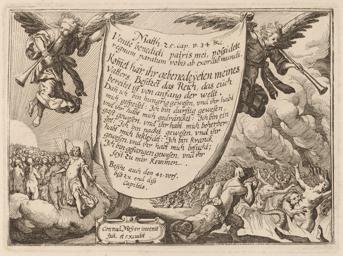 Matth. 25. cap. v. 34 &c.
Venite benedicti patris mei, possidete
regnum paratum vobis ab exordio mundi.
Kom̃et har ihr gebenedeyten meines
Vatters, Besitzet das Reich, das euch
bereitet ist von anfang der welt.
Dañ ich bin hungrig gewesen, vnd ihr habt
mich gespeißt: Ich bin durstig gewesen
vnd ihr habt mich getränckt: Ich bin ein
gast gewesen, vnd ihr habt mich beherber-
get: Ich bin nackend gewesen, vnd ihr
habt mich bekleidet: Ich bin kranck
gewesen, vnd ihr habt mich besucht:
Ich bin gefangen gewesen, vnd ihr
seyt zu mir kommen.
Besihe auch den 41. vers.
biß zu end diß
Capitels.
Conrad Meyer invenit
fecit et excudit